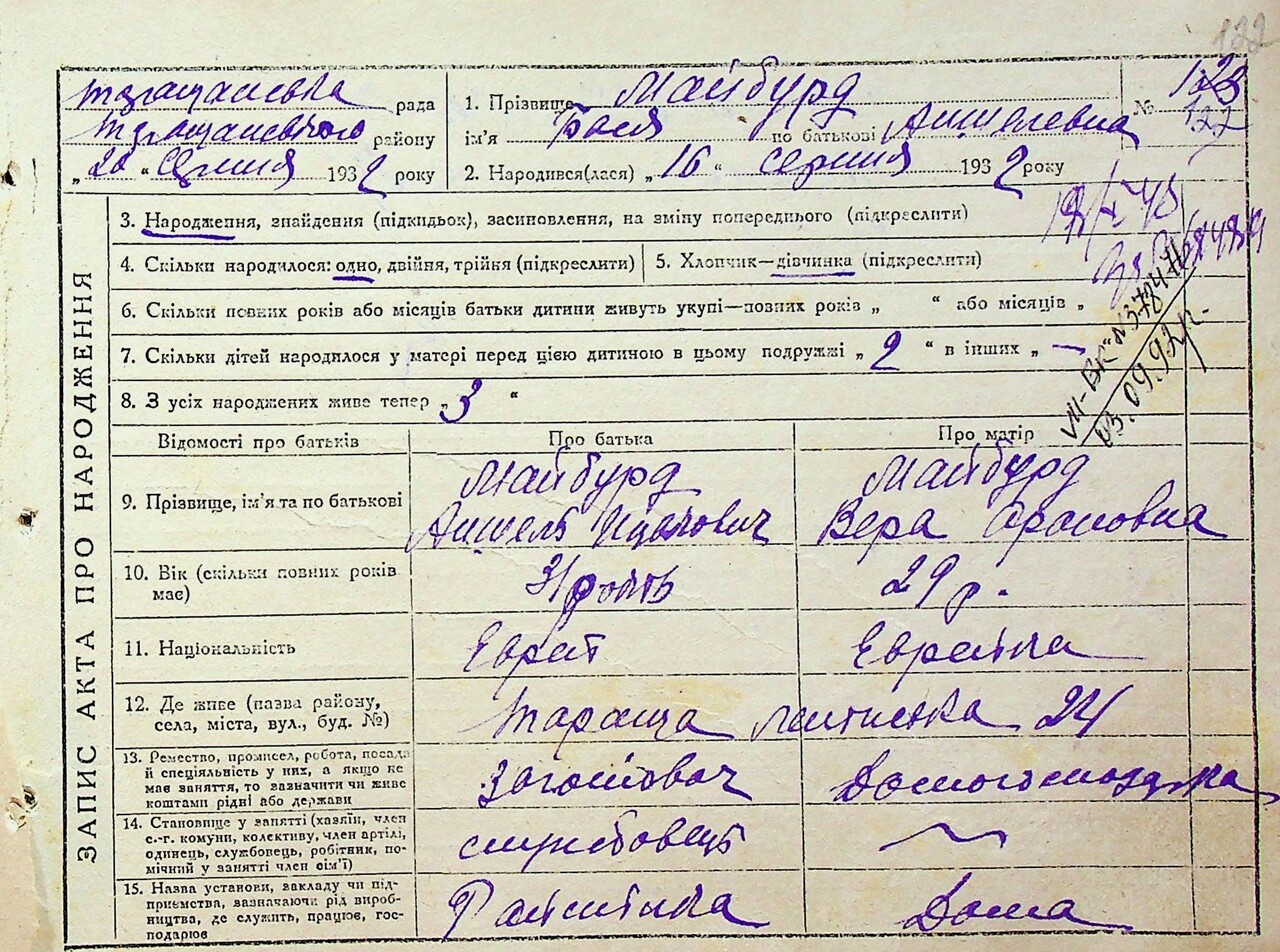 122
Таращанська рада
Таращанського району
„ 20 “ серпня 1932 року
1. Прізвище Майбурд
ім'я Бася по батькові Аншелевна
2. Народився(лася) „ 16 “ серпня 1932 року
№ 123
122
ЗАПИС АКТА ПРО НАРОДЖЕННЯ
3. Народження, знайдення (підкидьок), засиновлення, на зміну попереднього (підкреслити)
4. Скільки народилося: одно, двійня, трійня (підкреслити)
5. Хлопчик—дівчинка (підкреслити)
6. Скільки повних років або місяців батьки дитини живуть укупі—повних років „ “ або місяців „
7. Скільки дітей народилося у матері перед цією дитиною в цьому подружжі „ 2 “ в інших „ —
8. З усіх народжених живе тепер „ 3 “
03.09.92р.
Відомості про батьків
Про батька
Про матір
9. Прізвище, ім'я та по батькові
Майбурд
Аншель Ицкович
Майбурд
Вера Сроловна
10. Вік (скільки повних років
має)
31
29 р.
11. Національність
Еврей
Еврейка
12. Де живе (назва району,
села, міста, вул., буд. №)
Тараща 24
13. Ремество, промисел, робота, посада
й спеціяльність у них, а якщо не
має заняття, то зазначити чи живе
коштами рідні або держави
Домогосподарка
14. Становище у занятті (хазяїн, член
с.-г. комуни, колективу, член артілі,
одинець, службовець, робітник, по-
мічний у занятті член сім'ї)
службовець
15. Назва установи, закладу чи під-
приємства, зазначаючи рід вироб-
ництва, де служить, працює, гос-
подарює
Дома